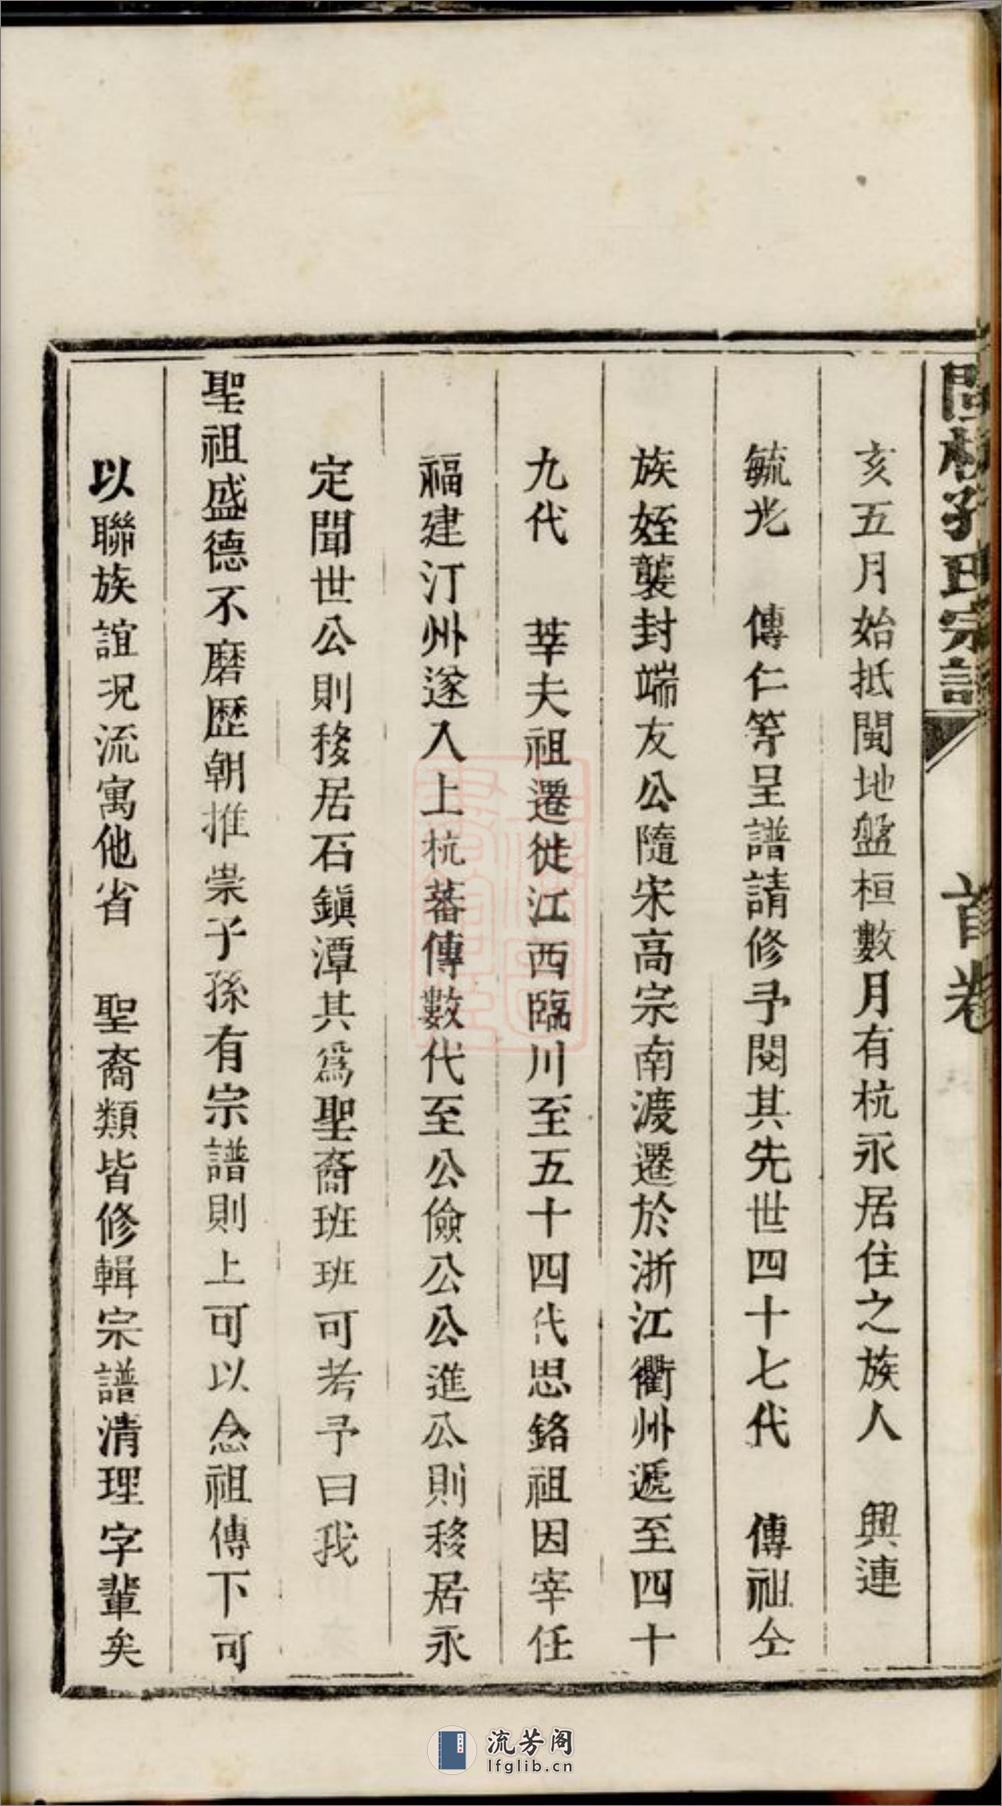 孔氏宗譜 首卷
亥五月始抵閩地盤桓數月有杭永居住之族人 興連
毓光 傳仁等呈譜請修予閱其先世四十七代 傳祖仝
族姪襲封端友公隨宋高宗南渡遷於浙江衢州遞至四十
九代 莘夫祖遷徙江西臨川至五十四代思銘祖因宰任
福建汀州遂入上杭蕃傳數代至公儉公公進公則移居永
定聞世公則移居石鎮潭其爲聖裔班班可考予曰我
聖祖盛德不磨歷朝推崇子孫有宗譜則上可以念祖傳下可
以聯族誼况流寓他省 聖裔類皆修輯宗譜清理字輩矣
流芳阁
lfglib.cn